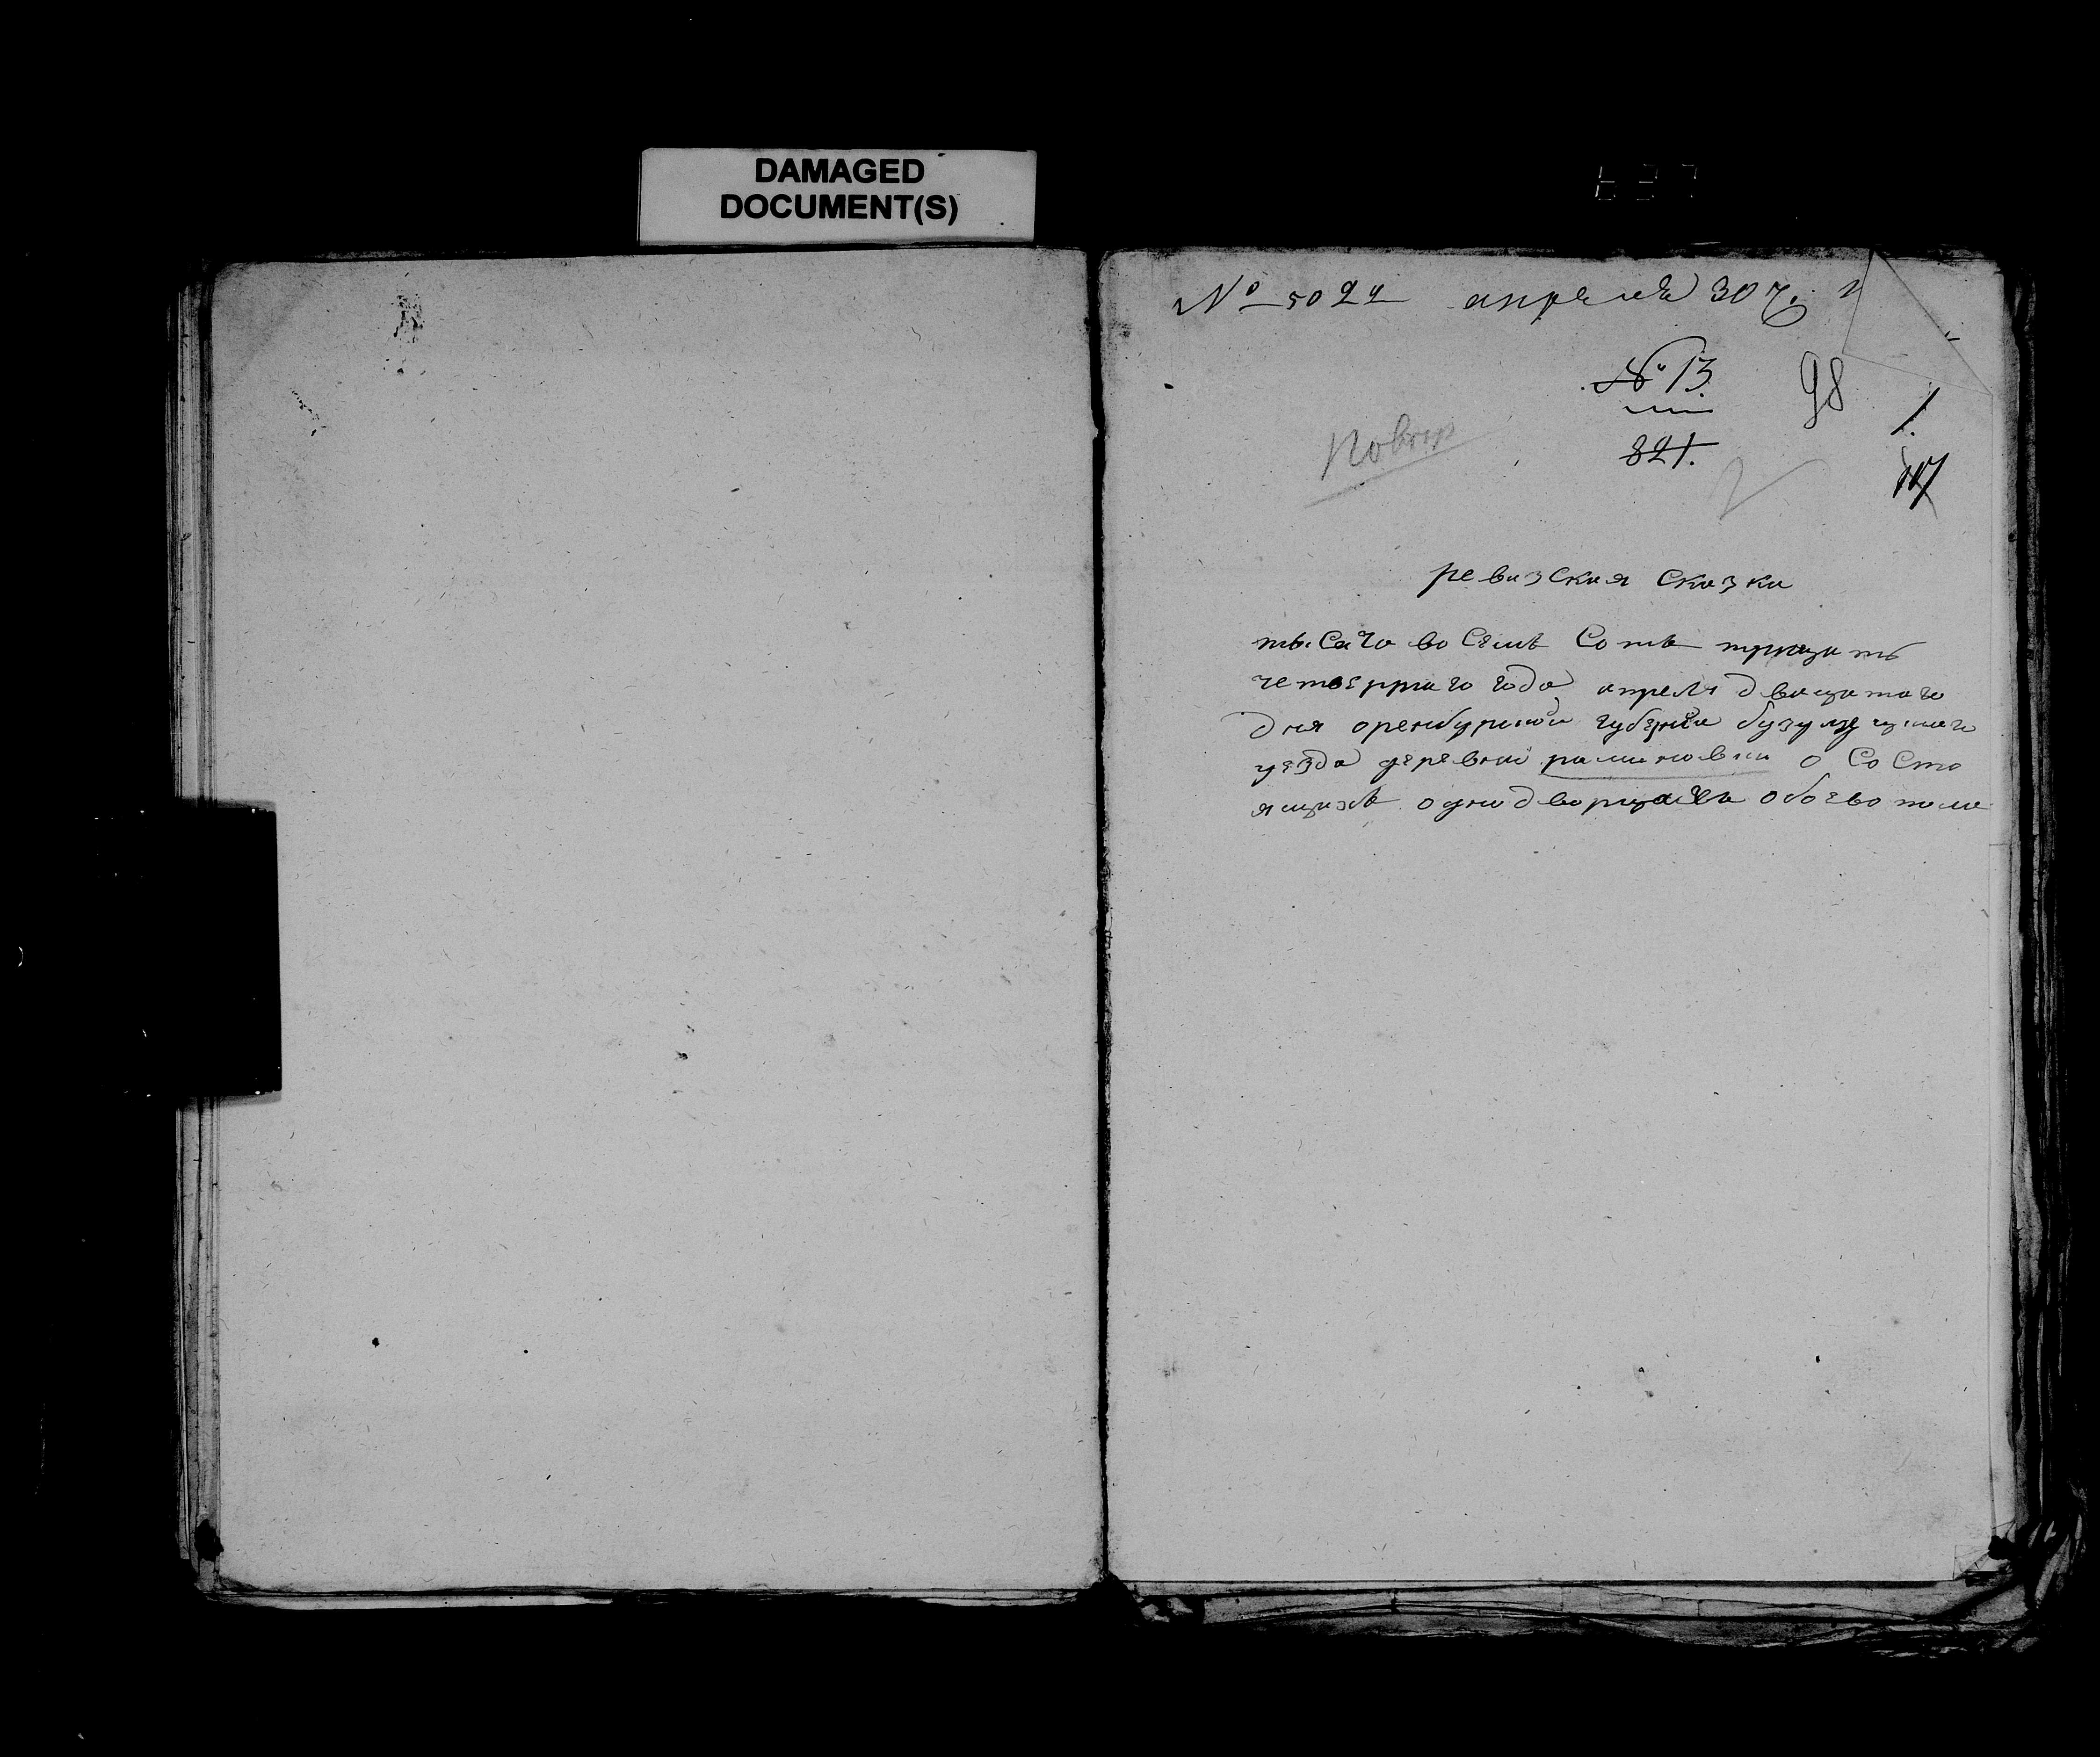 DAMAGED
DOCUMENT(S)
№ 5022 апреля 30 ч.
№ 13
821.
98
1.
117
Повтор
ревизская сказка
тысеча восемь сотъ тритцать
четвертаго года апреля двацатаго
дня оренбурской губернии бузулуцкаго
уезда деревни рашновки о состо
ящихъ однодворцахъ обоево пола